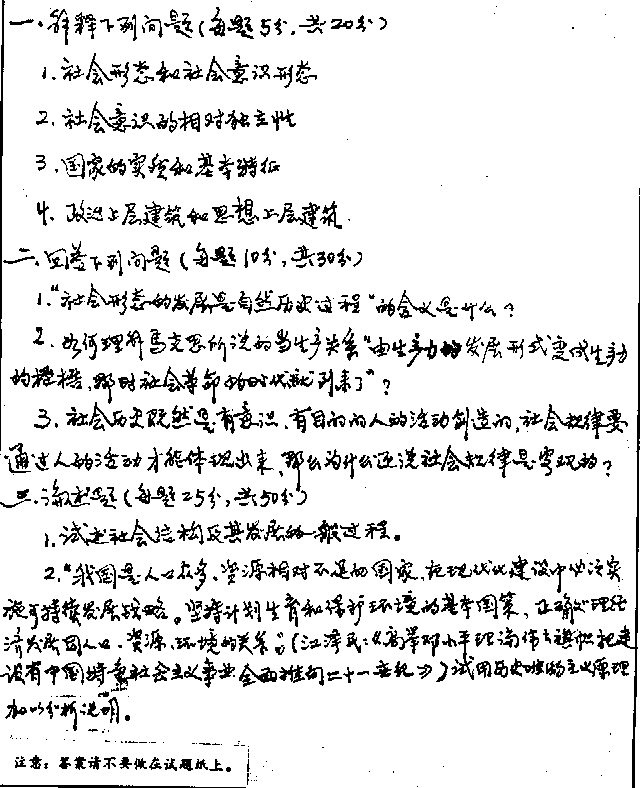 一.解释下列问题(每题5分,共20分)
1.社会形态和社会意识形态
2.社会意识的相对独立性
3.国家的实质和基本特征
4.政治上层建筑和思想上层建筑.
二.回答下列问题(每题10分,共30分)
1."社会形态的发展是自然历史过程"的含义是什么?
2.如何理解马克思所说的当生产关系"由生产力的发展形式变成生产力
的桎梏,那时社会革命的时代就到来了"?
3.社会历史既然是有意识、有目的的人的活动创造的,社会规律要
通过人的活动才能体现出来,那么为什么还说社会规律是客观的?
三.论述题(每题25分,共50分)
1.试述社会结构及其发展的一般过程。
2."我国是人口众多、资源相对不足的国家,在现代化建设中必须实
施可持续发展战略。坚持计划生育和保护环境的基本国策,正确处理经
济发展同人口、资源、环境的关系。"(江泽民:《高举邓小平理论伟大旗帜把建
设有中国特色社会主义事业全面推向二十一世纪》)试用历史唯物主义原理
加以分析说明。
注意:答案请不要做在试题纸上。